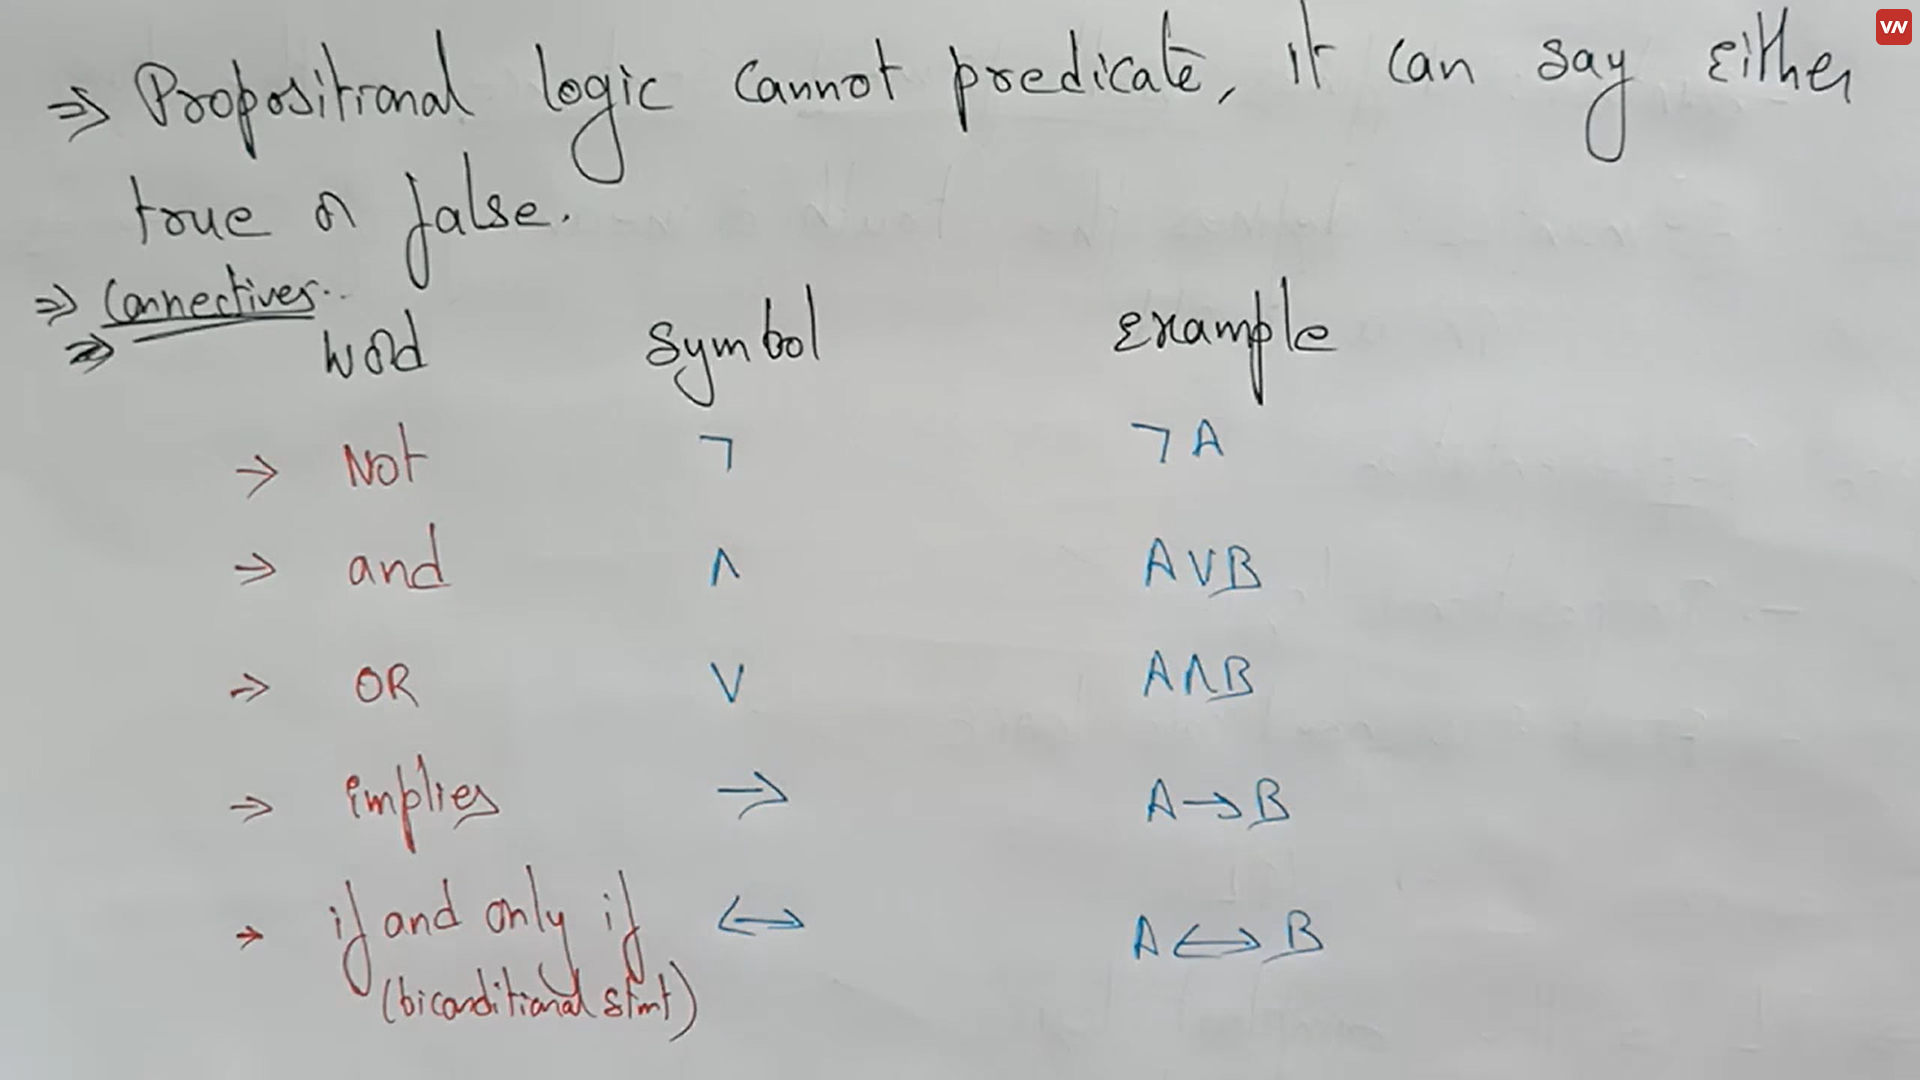 ⇒ Propositional logic cannot predicate, it can say either
true or false.
⇒ Connectives..
⇒ Word Symbol Example
→ Not ¬ ¬A
→ and ∧ A∨B
→ OR ∨ A∧B
→ implies → A→B
→ if and only if ↔ A↔B
(biconditional stmt)
VN